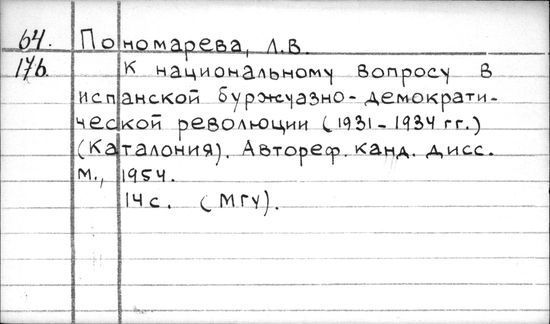 64. Пономарева, Л.В.
17б. К национальному вопросу в
испанской буржуазно-демократи-
ческой революции (1931-1934 гг.)
(Каталония). Автореф. канд. дисс.
М., 1954.
14 с. (МГУ).